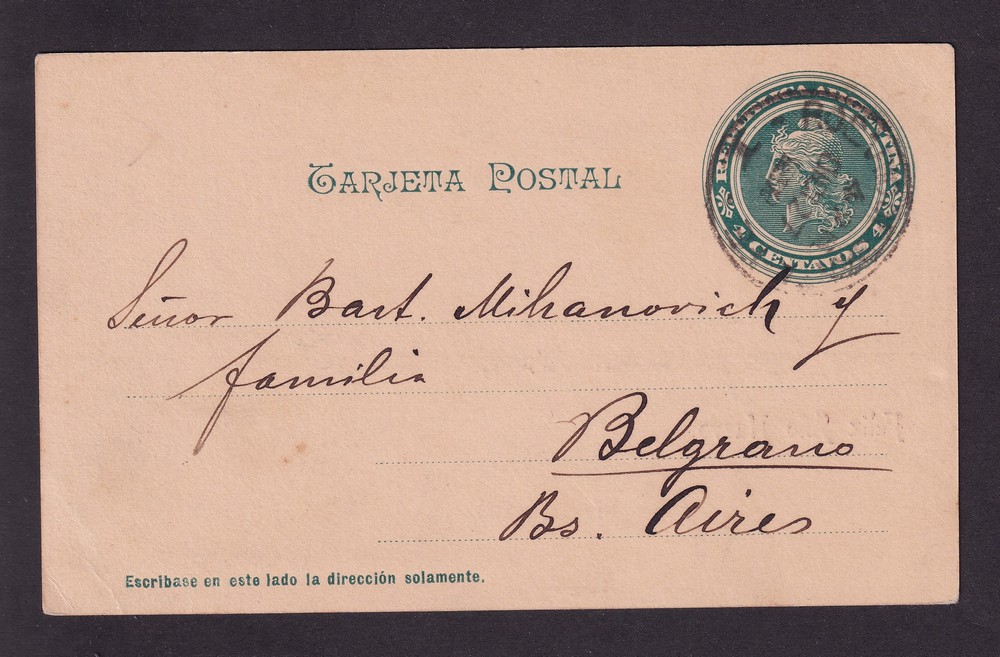 REPUBLICA ARGENTINA
4 CENTAVOS 4
TARJETA POSTAL
Señor Bart. Mihanovich y
familia
Belgrano
Bs. Aires
Escribase en este lado la dirección solamente.